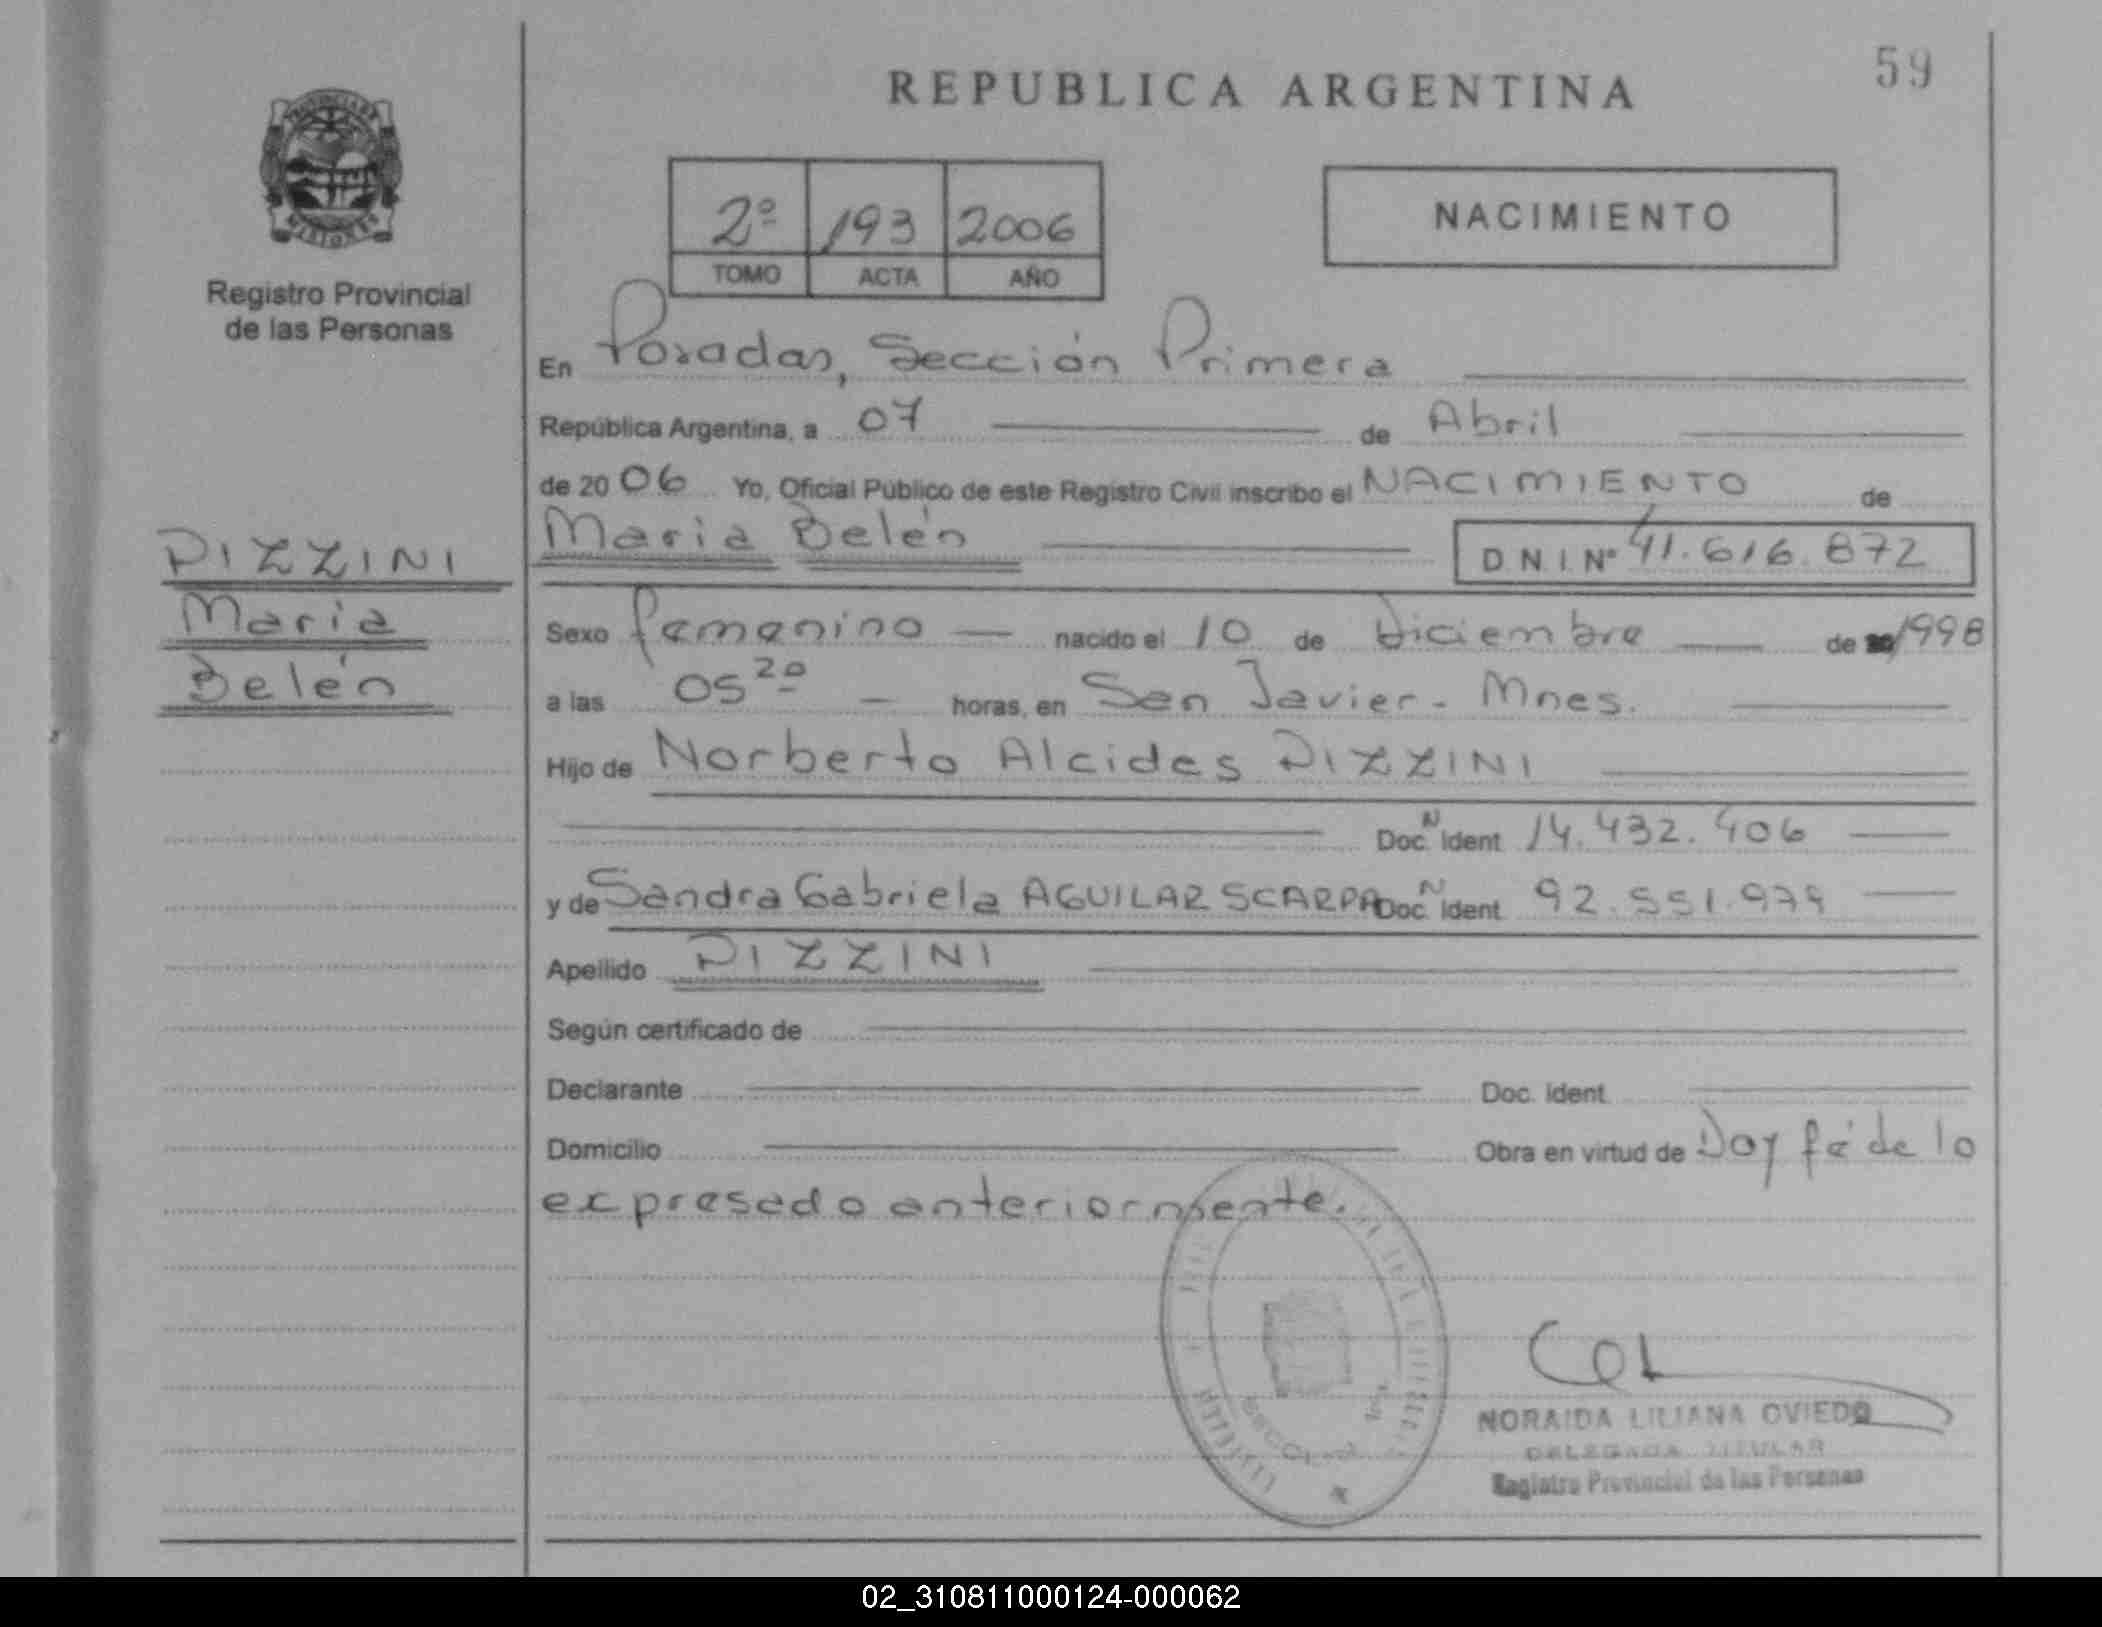 59
REPUBLICA ARGENTINA
PROVINCIA DE
MISIONES
2º 193 2006
TOMO ACTA AÑO
NACIMIENTO
Registro Provincial
de las Personas
En Posadas, Sección Primera
República Argentina, a 07 de Abril
de 2006 Yo, Oficial Público de este Registro Civil inscribo el NACIMIENTO de
María Belén D.N.I. Nº 41.616.872
PIZZINI
María
Belén
Sexo femenino nacido el 10 de Diciembre de 1998
a las 05 20 horas, en San Javier - Mnes.
Hijo de Norberto Alcides PIZZINI
Doc. N Ident 14.432.406
y de Sandra Gabriela AGUILAR SCARPA Doc. N Ident 92.551.979
Apellido PIZZINI
Según certificado de
Declarante Doc. Ident.
Domicilio Obra en virtud de Doy fé de lo
expresado anteriormente.
NORAIDA LILIANA OVIEDO
DELEGADA TITULAR
Registro Provincial de las Personas
02_310811000124-000062